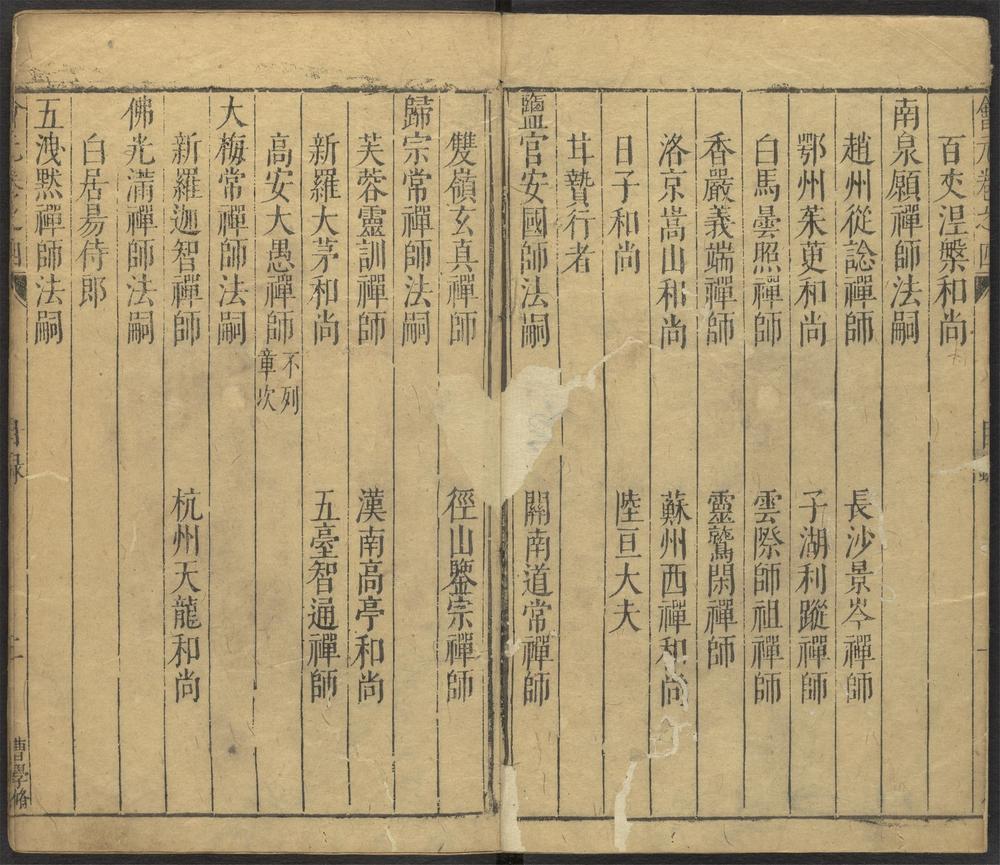 百丈涅槃和尚
南泉願禪師法嗣
趙州從諗禪師　長沙景岑禪師
鄂州茱萸和尚　子湖利蹤禪師
白馬曇照禪師　雲際師祖禪師
香嚴義端禪師　靈鷲閑禪師
洛京嵩山和尚　蘇州西禪和尚
日子和尚　陸亘大夫
甘贄行者
鹽官安國師法嗣　關南道常禪師
雙嶺玄真禪師　徑山鑒宗禪師
歸宗常禪師法嗣
芙蓉靈訓禪師　漢南高亭和尚
新羅大茅和尚　五臺智通禪師
高安大愚禪師不列章次
大梅常禪師法嗣
新羅迦智禪師　杭州天龍和尚
佛光滿禪師法嗣
白居易侍郎
五洩默禪師法嗣
目錄
二
曹學脩